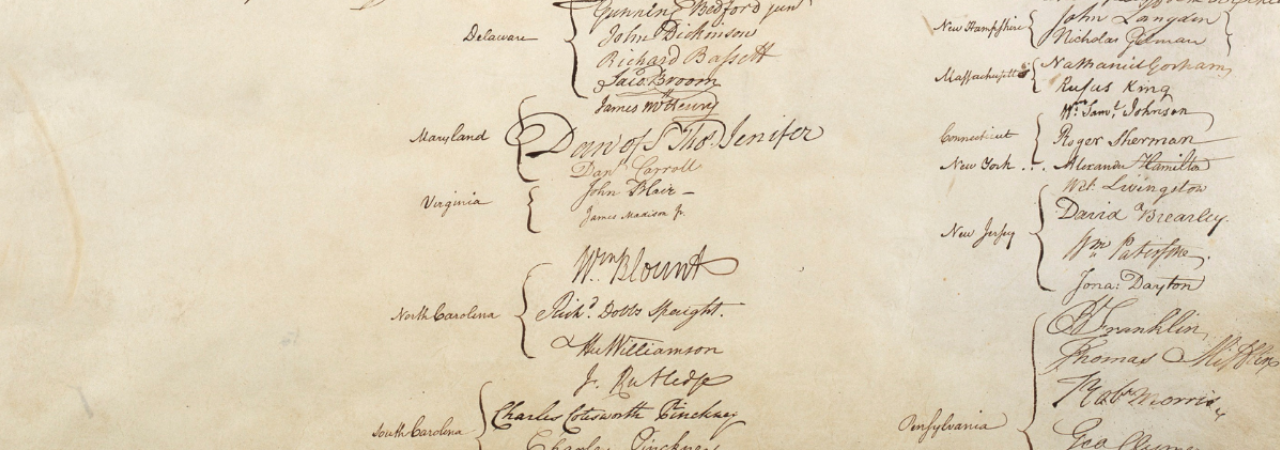 Delaware
Gunning Bedford jun
John Dickinson
Richard Bassett
Jaco: Broom
Maryland
James McHenry
Dan of St Thos. Jenifer
Danl Carroll
Virginia
John Blair —
James Madison Jr.
North Carolina
Wm Blount
Richd. Dobbs Spaight.
Hu Williamson
South Carolina
J. Rutledge
Charles Cotesworth Pinckney
Charles Pinckney
New Hampshire
John Langdon
Nicholas Gilman
Massachusetts
Nathaniel Gorham
Rufus King
Connecticut
Wm. Saml. Johnson
Roger Sherman
New York . . .
Alexander Hamilton
New Jersey
Wil: Livingston
David Brearley.
Wm Paterson.
Jona: Dayton
Pensylvania
B Franklin
Thomas Mifflin
Robt Morris
Geo Clymer